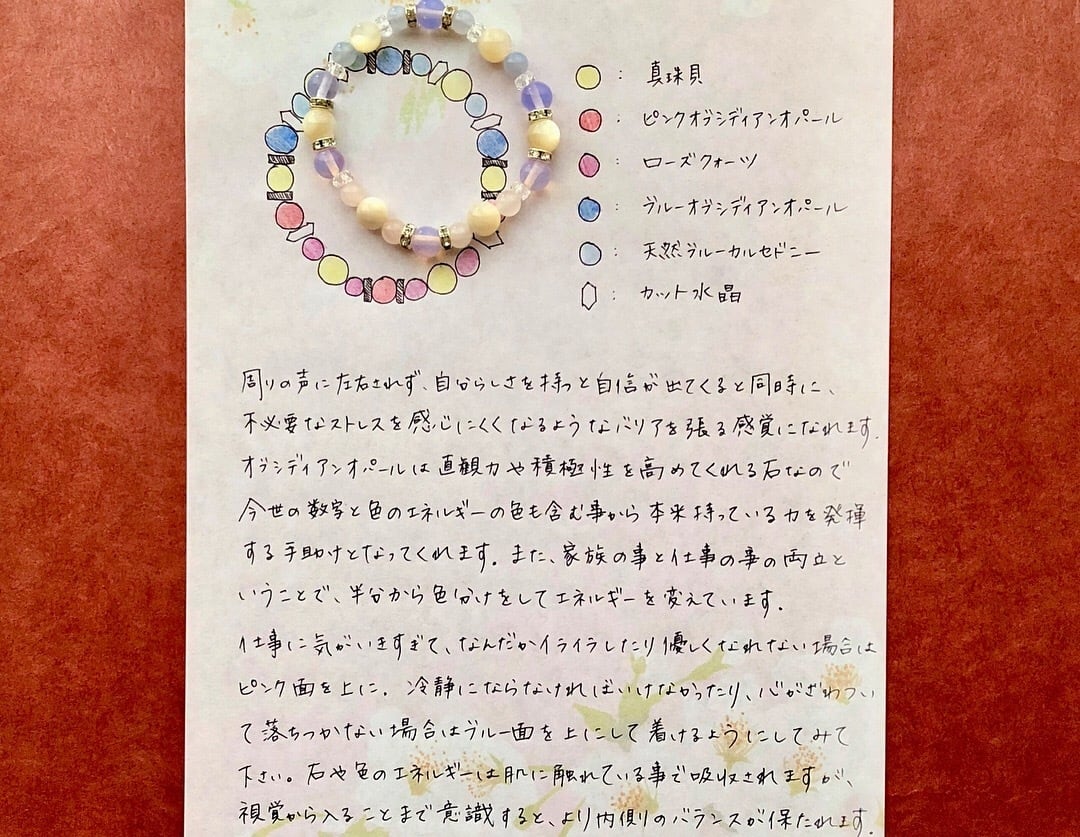 : 真珠貝
: ピンクオブシディアンオパール
: ローズクォーツ
: ブルーオブシディアンオパール
: 天然ブルーカルセドニー
: カット水晶
周りの声に左右されず、自分らしさを持つと自信が出てくると同時に、
不必要なストレスを感じにくくなるようなバリアを張る感覚になれます。
オブシディアンオパールは直観力や積極性を高めてくれる石なので
今世の数字と色のエネルギーの色も含む事から本来持っている力を発揮
する手助けとなってくれます。また、家族の事と仕事の事の両立と
いうことで、半分から色分けをしてエネルギーを変えています。
仕事に気がいきすぎて、なんだかイライラしたり優しくなれない場合は
ピンク面を上に。冷静にならなければいけなかったり、心がざわつい
て落ちつかない場合はブルー面を上にして着けるようにしてみて
下さい。石や色のエネルギーは肌に触れている事で吸収されますが、
視覚から入ることまで意識すると、より内側のバランスが保たれます。